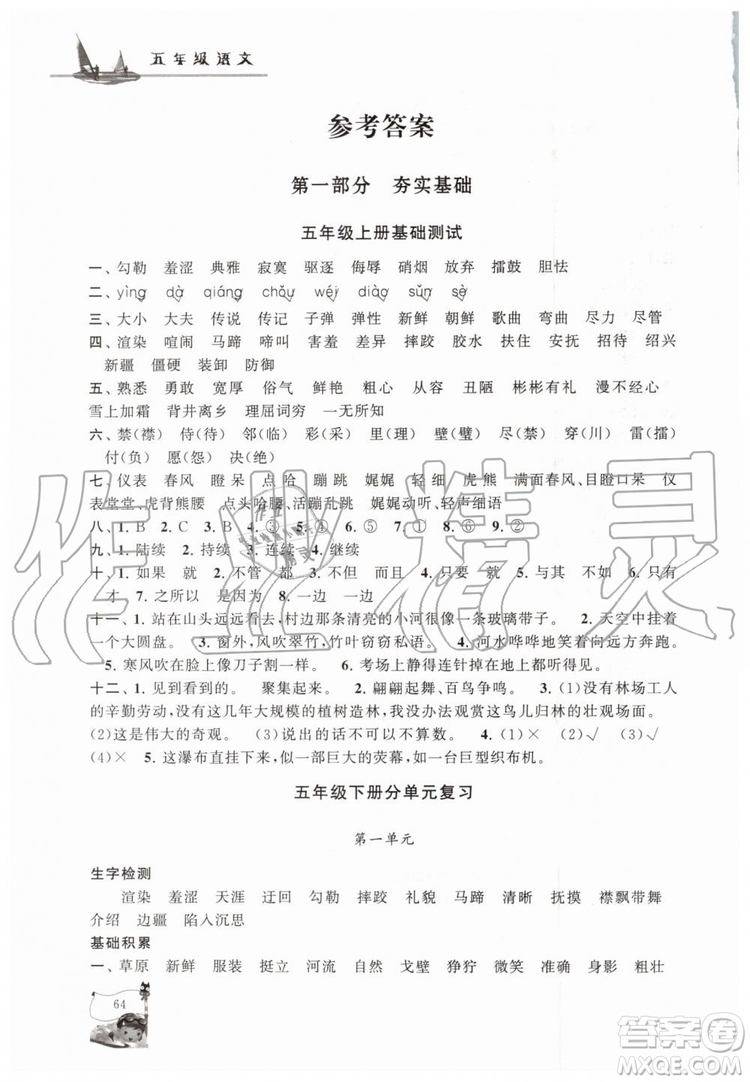 五年级语文
参考答案
第一部分 夯实基础
五年级上册基础测试
一、勾勒 羞涩 典雅 寂寞 驱逐 侮辱 硝烟 放弃 擂鼓 胆怯
二、yìng dà qiáng chǒu wéi diào sǔn sè
三、大小 大夫 传说 传记 子弹 弹性 新鲜 朝鲜 歌曲 弯曲 尽力 尽管
四、渲染 喧闹 马蹄 啼叫 害羞 差异 摔跤 胶水 扶住 安抚 招待 绍兴
新疆 僵硬 装卸 防御
五、熟悉 勇敢 宽厚 俗气 鲜艳 粗心 从容 丑陋 彬彬有礼 漫不经心
雪上加霜 背井离乡 理屈词穷 一无所知
六、禁(襟) 侍(待) 邻(临) 彩(采) 里(理) 壁(璧) 尽(禁) 穿(川) 雷(擂)
付(负) 愿(怨) 决(绝)
七、仪表 春风 瞪呆 点哈 蹦跳 娓娓 轻细 虎熊 满面春风、目瞪口呆、仪表
堂堂、虎背熊腰 点头哈腰、活蹦乱跳 娓娓动听、轻声细语
八、1. B 2. C 3. B 4. ③ 5. ④ 6. ⑤ 7. ① 8. ⑥ 9. ②
九、1. 陆续 2. 持续 3. 连续 4. 继续
十、1. 如果 就 2. 不管 都 3. 虽然 但 4. 即使 也 5. 与其 不如 6. 只有
才 7. 之所以 是因为 8. 一边 一边
十一、1. 站在山头远远看去,村边那条清亮的小河很像一条玻璃带子。 2. 天空中挂着
一个大圆盘。 3. 窗外,风吹翠竹,竹叶窃窃私语。 4. 河水哗哗地笑着向远方奔跑。
5. 寒风吹在脸上像刀子割一样。 6. 考场上静得连针掉在地上都能听见。
十二、1. 见到看到的。 聚集到的。 2. 翩翩起舞、百鸟争鸣。 3. (1)没有林场工人
的辛勤劳动,没有这几年大规模的植树造林,我们就无法观赏这鸟儿归林的壮观场面。
(2)这是伟大的奇观。 (3)说出的话不履行,不算数。 4. (1)× (2)√ (3)√
(4)× 5. 这瀑布直挂下来,似一部巨大的荧幕,如一台巨型织布机。
五年级下册分单元复习
第一单元
生字检测
渲染 羞涩 天涯 迂回 勾勒 摔跤 礼貌 马蹄 清晰 抚摸 襟飘带舞
介绍 边疆 陷入沉思
基础积累
一、草原 新鲜 服装 挺立 河流 自然 戈壁 狰狞 微笑 准确 身影 粗壮
64
作业精灵
答案圈
MXQE.COM